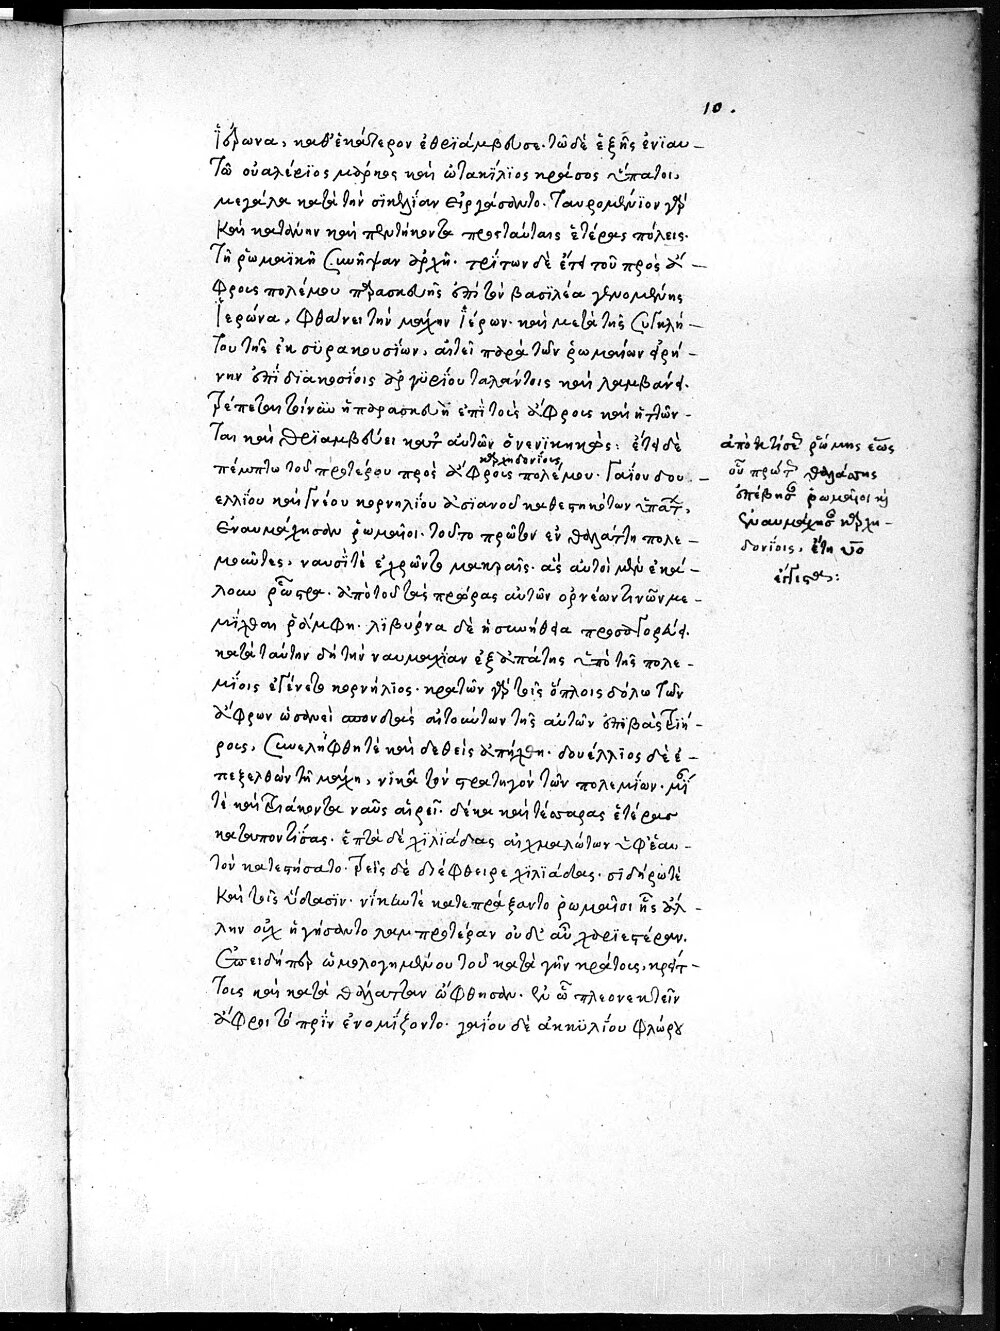 10.
Ἱέρωνα, καθ' ἑκάτερον ἐθριάμβευσε. τῶ δὲ ἑξῆς ἐνϊαυ-
τῶ οὐαλέριος μάρκος καὶ ὠτακίλιος κράσος ὕπατοι,
μεγάλα κατὰ τὴν σϊκελίαν εἰργάσαντο. ταυρομένϊον γὰρ
καὶ κατάνην καὶ πεντήκοντα πρὸς ταύταις ἑτέρας πόλεις.
τῆ ῥωμαϊκῆ συνῆψαν ἀρχῆ. τρίτων δὲ ἔτει τοῦ πρὸς ἄ-
φρους πολέμου παρασκευῆς ἐπὶ τὸν βασιλέα γενομένης
Ἱερώνα, φθάνει τὴν μάχην Ἱέρων. καὶ μετὰ τῆς συγκλή-
του τῆς ἐκ συρακουσίων, αἰτεῖ παρὰ τῶν ῥωμαίων εἰρή-
νην ἐπὶ διακοσίοις ἀργυρίου ταλάντοις καὶ λαμβάνει.
τρέπεται τοίνυν ἡ παρασκευὴ ἐπὶ τοὺς ἄφρους καὶ ἡττῶν-
ται καὶ θριαμβεύει κατ' αὐτῶν ὁ νενϊκηκώς: ἔτει δὲ
καρχηδονίους
πέμπτω τοῦ προτέρου πρὸς ἄφρους πολέμου. Γαΐου δου-
ελλίου καὶ Γνέου κορνηλίου ἀσϊανοῦ καθεστηκότων ὑπάτ,
ἐναυμάχησαν ῥωμαῖοι. τοῦτο πρῶτον ἐν θαλάττη πολε-
μοῦντες, ναυσὶ τὲ ἐχρῶντο μακραῖς. ἃς αὐτοὶ μὲν ἐκά-
λουν ῥώστρα. ἀπὸ τοῦ τὰς πρώρας αὐτῶν ὀρνέων τινῶν με-
μῖχθαι ῥάμφη. λϊβυρνα δὲ ἡ συνήθεια προσαγορεύει.
κατὰ ταύτην δὴ τὴν ναυμαχίαν ἐξ ἀπάτης ὑπὸ τῆς πολε-
μίοις ἐγένετο κορνήλϊος. κρατῶν γὰρ τοῖς ὅπλοις δόλω τῶν
ἄφρων ὡσανεὶ σπονδὰς αἰτούντων τῆς αὐτῶν ἐπιβὰς τριή-
ρους, συνελήφθη τὲ καὶ δεθεὶς ἀπήχθη. δουέλλιος δὲ ἐ-
πεξελθὼν τῆ μάχη, νϊκᾶ τὸν στρατηγὸν τῶν πολεμίων. μΐ
τὲ καὶ τριάκοντα ναῦς αἱρεῖ. δέκα καὶ τέσσαρας ἑτέρας
καταποντίσας. ἑπτὰ δὲ χϊλϊάδας αἰχμαλώτων ὑφ' ἑαυ-
τὸν κατεστήσατο. τρεῖς δὲ διέφθειρε χϊλϊάδας. σιδήρω τὲ
καὶ τοῖς ὕδασϊν. νίκην τὲ κατεπράξαντο ῥωμαῖοι ἧς ἄλ-
λην οὐχ ἡγήσαντο λαμπροτέραν οὐδ' αὖ χαριεστέραν.
ἐπειδήπερ ὡμολογημένου τοῦ κατὰ γῆν κράτους, κρείτ-
τους καὶ κατὰ θάλατταν ὤφθησαν. ἐν ὧ πλεονεκτεῖν
ἄφροι τὸ πρὶν ἐνομίζοντο. γαΐου δὲ ἀκηϋλίου φλώρου
ἀπὸ κτίσε ῥώμης ἕως
οὗ πρώτ θαλάσσης
ἐπέβησ ῥωμαῖοι κὶ
ἐναυμάχησ καρχη-
δονίοις, ἔτη